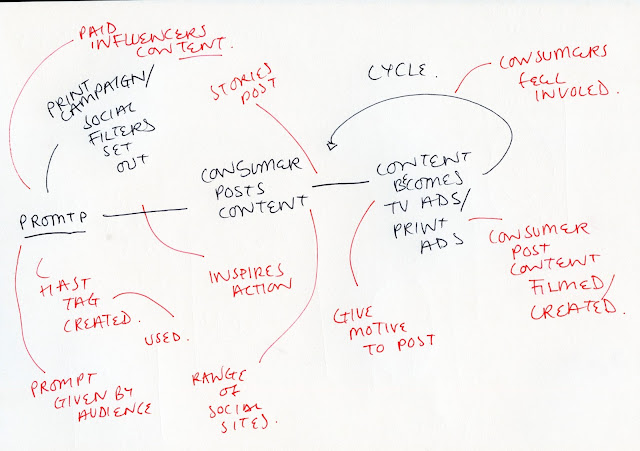 PAID
INFLUENCERS
CONTENT.
PRINT
CAMPAIGN/
SOCIAL
FILTERS
SET
OUT
STORIES
POST
CYCLE.
CONSUMERS
FEEL
INVOLED.
PROMTP
CONSUMER
POSTS
CONTENT
CONTENT
BECOMES
TV ADS/
PRINT
ADS
CONSUMER
POST
CONTENT
FILMED/
CREATED.
HAST
TAG
CREATED.
USED.
INSPIRES
ACTION
GIVE
MOTIVE
TO POST
PROMPT
GIVEN BY
AUDIENCE
RANGE
OF
SOCIAL
SITES.